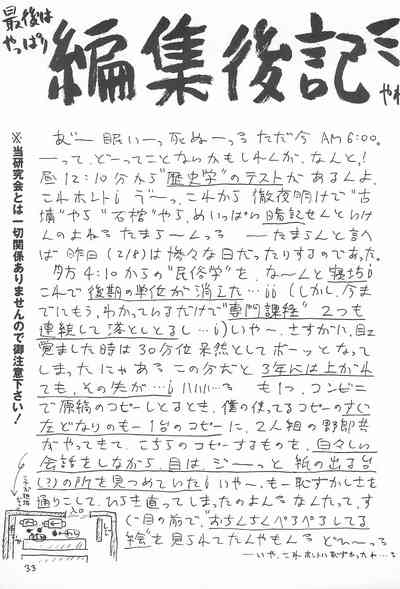 最後は
やっぱり
編集後記
やわ
※当研究会とは一切関係ありませんので御注意下さい！
あ゛ー 眠いーっ 死ぬーっる ただ今 AM6:00。
ーって、どーってことないかもしれんが、なんと！
昼12:10分から"歴史学"のテストがあるんよ、
これホント！ う゛ーっ、これから 徹夜明けで"古
墳"やら"石棺"やら、めいっぱい暗記せんといけ
んのよねる たまらーんっる ーたまらんと言へ
ば 昨日(2/8)は惨々な日だったりするのであった。
夕方4:10からの"民俗学"を、なーんと寝坊！
これで後期の単位が消えた…！！(しかし、今ま
でにもう、わかっているだけで"専門課程" 2つも
連続して落としとるし…！)いやー、さすがに、目が
覚ました時は30分位呆然としてボーッとなって
しまった にゃある この分だと 3年には上がれ
ても、その先が…！ も1つ、コンビニ
で原稿のコピーしとるとき、僕の使ってるコピーのすぐ
左どなりのもー1台のコピーに、2人組の野郎共
がやってきて、こちらのコピーするものを、白々しい
会話をしながら、目は、ジーっと 紙の出る台
(?)の所を見つめていた！いやー、もー恥ずかしさを
通りこして、ひらき直ってしまったのよんる なんたって、す
ぐ目の前で、"おちんちんぺろぺろしてる
絵"を見られてたんやもんる どわーっる
ーいや、これホントに恥ずかったわ…る
入口
33